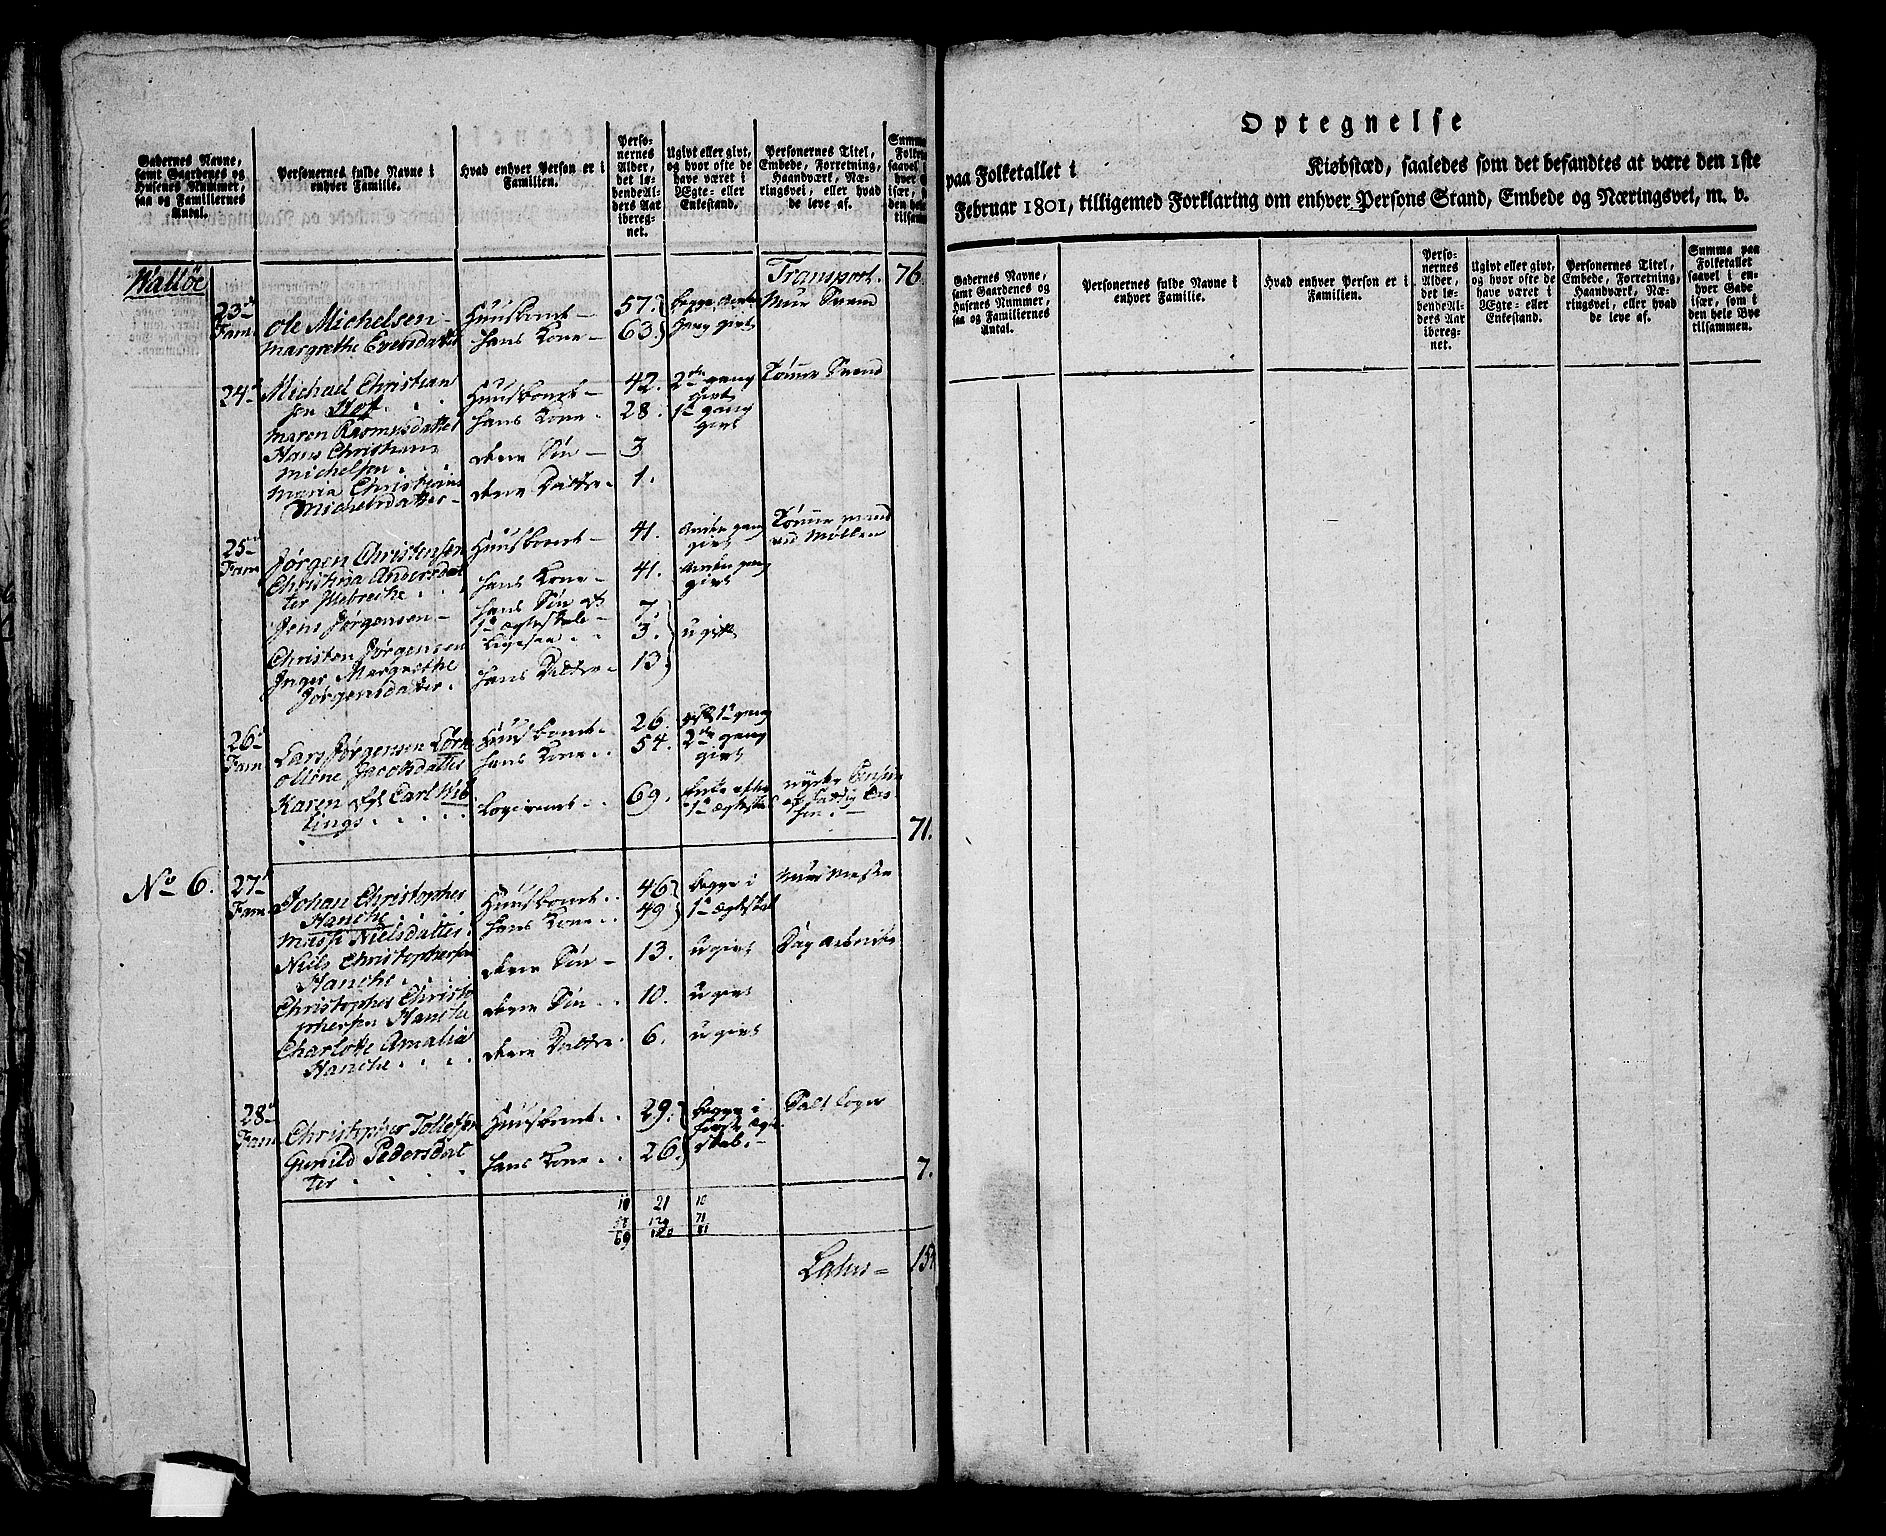 Gadernes Navne, samt Gaardenes og Husenes Nummer, saa og Familiernes Antal.
Personernes fulde Navne i enhver Familie.
Hvad enhver Person er i Familien.
Personernes Alder, det løbendeAlders Aar iberegnet.
Ugivt eller givt, og hvor ofte de have været i Ægte- eller Enkestand.
Personernes Titel, Embede, Forretning, Haandværk, Næringsvei, eller hvad de leve af.
Waltøe Transport. 76
23de Fam. Ole Michelsen Huusbond 57. begge anden Muur Svend
Margrethe Eversdatter hans Kone 63. Gang givt
24de Michael Christian Huusbond 42. 2den gang Tømmer Svend
sen Hof givt
Maren Rasmusdatter hans Kone 28. 1te gang givt
Hans Christian
Michelsen deres Søn 3
Maria Christiana
Michelsdatter deres Datter 1.
25de Fam. Jørgen Christensen Huusbond 41. Anden gang givt Tømmer mand
Christina Andersdat hans Kone 41. Anden gang givt
ter
Jens Jørgensen hans Søn af 1te ægteskab 7.
Christen Jørgensen Ligesaa 3. ugift
Inger Margrethe
Jørgensdatter hans Datter 13
26de Fam. Lars Jørgensen Huusbond 26. 1te gang
Oliane Jacobsdatter hans Kone 54. 2den gang givt
Karen Carl Wib Logerende 69. Enke efter
lings 1te ægteskab
71.
No 6. 27de Fam. Johan Christopher Huusbond 46 begge i Muur Mester
Hanche
Masse Nielsdatter hans Kone 49 1te ægteskab
Niels Christophersen
Hanche deres Søn 13. ugivt Dag arbeider
Christopher Christo
phersen Hanche deres Søn 10. ugivt
Charlotte Amalia
Hanche deres Datter 6. ugivt
28de Fam. Christopher Tollefsen Huusbond 29. begge i Salt Coger
første ægte
Gunild Pedersdat hans Kone 26 skab
ter 7.
10 21 10
71
69
Latus
Optegnelse
paa Folketallet i Kiøbstæd, saaledes som det befandtes at være den 1ste
Februar 1801, tilligemed Forklaring om enhver Persons Stand, Embede og Næringsvei, m. v.
Gadernes Navne, samt Gaardenes og Husenes Nummer, saa og Familiernes Antal.
Personernes fulde Navne i enhver Familie.
Hvad enhver Person er i Familien.
Personernes Alder, det løbendeAlders Aar iberegnet.
Ugivt eller givt, og hvor ofte de have været i Ægte- eller Enkestand.
Personernes Titel, Embede, Forretning, Haandværk, Næringsvei, eller hvad de leve af.
Summa paa Folketallet saavel i enhver Gade især, som i den hele Bye tilsammen.